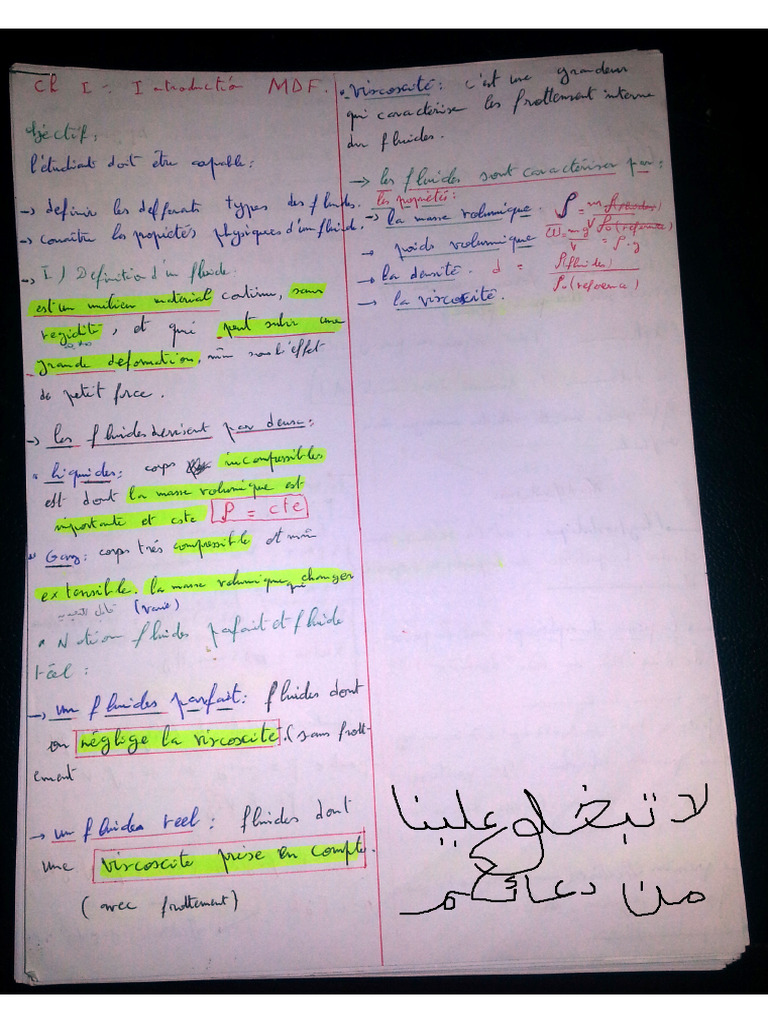 Ch I : Introduction MDF.
objectif :
l'étudiant doit être capable :
→ definir les defferents types des fluides.
→ connaître les propiétés physiques d'un fluide.
→ I) Definition d'un fluide :
est un milieu material continu, sans
regidité, et qui peut subir une
grande deformation, mm sous l'effet
de petit force.
→ les fluides devisent par deux :
• liquides : corps incompressibles
est dont la masse volumique est
importante et cste ρ = cte
• Gaz : corps trés compressible et mm
extensible. la masse volumique qui changer
(varie)
• Notion fluides parfait et fluide
réel :
→ un fluides parfait : fluides dont
on néglige la viscosité. (sans frott-
ement
→ un fluides reel : fluides dont
une viscosite prise en compte.
(avec frottement)
• viscosité : c'est une grandeur
qui caracterise les frottement interne
du fluides.
→ les fluides sont caractériser par :
les propiétés :
→ la masse volumique. ρ = m/V
→ poids volumique ω = mg/V = ρ.g
→ la densité. d = ρ(fluides)/ρ₀(reference)
→ la viscosité.
لا تبخلوا علينا
من دعائكم